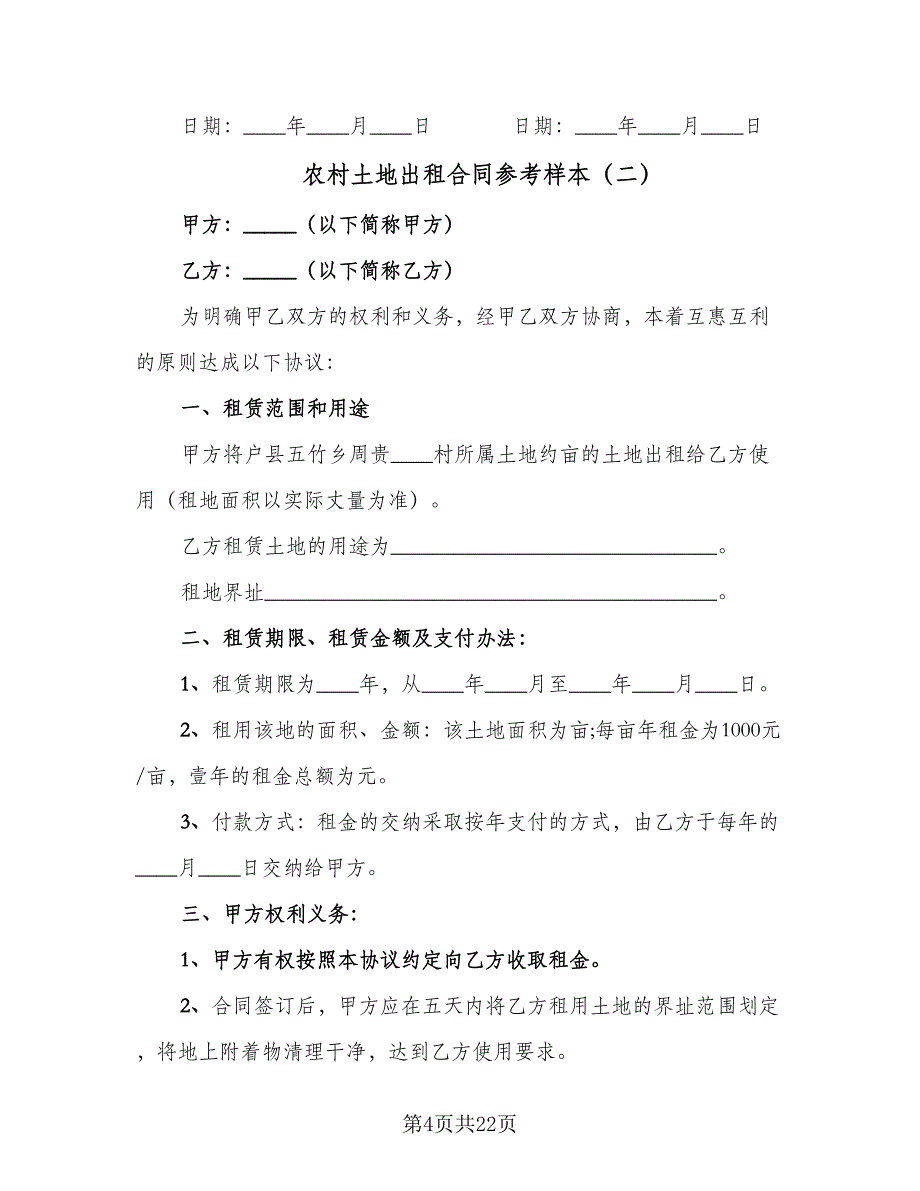 日期：____年____月____日　　　　日期：____年____月____日
农村土地出租合同参考样本（二）
甲方：_____（以下简称甲方）
乙方：_____（以下简称乙方）
为明确甲乙双方的权利和义务，经甲乙双方协商，本着互惠互利
的原则达成以下协议：
一、租赁范围和用途
甲方将户县五竹乡周贵____村所属土地约亩的土地出租给乙方使
用（租地面积以实际丈量为准）。
乙方租赁土地的用途为_______________________________。
租地界址___________________________________________。
二、租赁期限、租赁金额及支付办法：
1、租赁期限为____年，从____年____月至____年____月____日。
2、租用该地的面积、金额：该土地面积为亩;每亩年租金为1000元
/亩，壹年的租金总额为元。
3、付款方式：租金的交纳采取按年支付的方式，由乙方于每年的
____月____日交纳给甲方。
三、甲方权利义务：
1、甲方有权按照本协议约定向乙方收取租金。
2、合同签订后，甲方应在五天内将乙方租用土地的界址范围划定
，将地上附着物清理干净，达到乙方使用要求。
第4页共22页